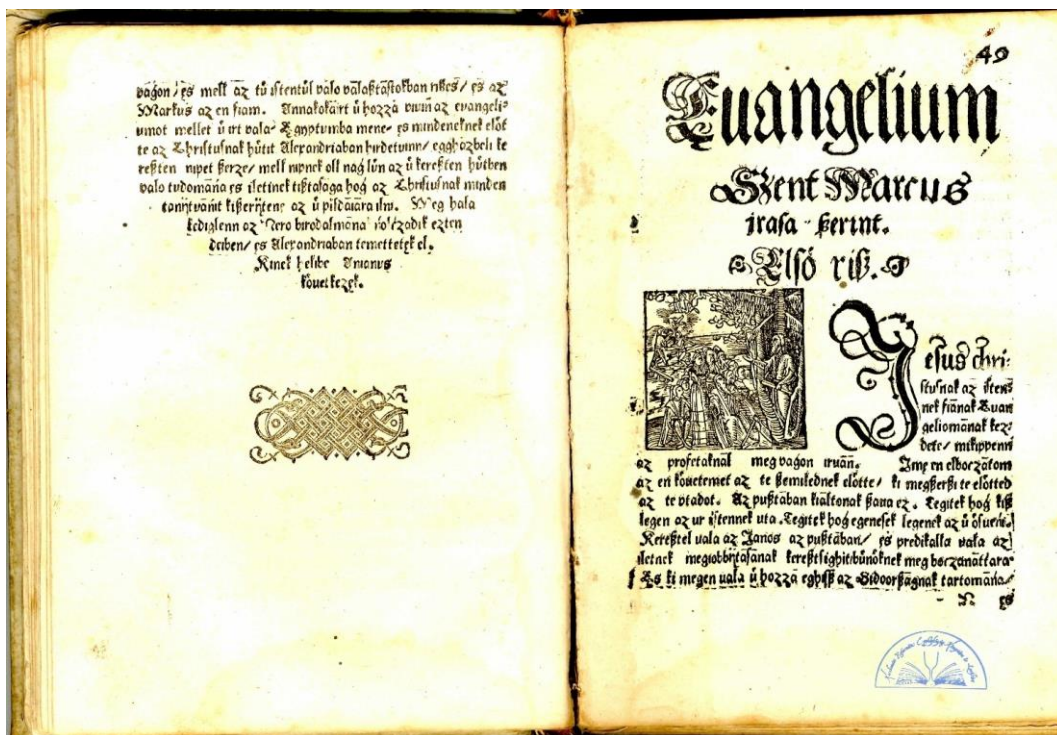 vagon/ es mell az tü istentül valo valaßtástokban rißes/ es az
Markus az en fiam. Annakokáirt ü hozzá vivin az evangeli-
umot mellet ü irt vala. Egyptumba mene, es mindeneknek elöt
te az Christusnak hütit Alexandriaban hirdetvinn/ egghazbeli ke
reßten nipet ßerze/ mell nipnek oll nag lün az ü kereßten hütben
valo tudomána es iletinek tißtasága hog az Christusnak minden
tanijtvánit kißerijtene az ü pildáiára ilni. Meg hala
kediglenn az Nero birodalmána ezten
deiben/ es Alexandriaban temettetek el.
Kinek helibe Anianus
köuetkezek.
49
Euangelium
Szent Marcus
irasa ßerint.
Elsö riß.
Iesus Chri:
stusnak az isten
nek fiának Euan
geliomának kez-
dete/ mikippenn
az profetaknál meg vagon iruán. Ime en elboczátom
az en köuetemet az te ßemilednek elötte/ ki megßerßi te elötted
az te vtadot. Az pußtában kiáltonak ßaua ez. Tegitek hog kiß
legen az ur istennek uta. Tegitek hog egenesek legenek az ü ösueni.
Kereßtel uala az Janos az pußtában/ es predikalla vala az
iletnek megiobbijtásának kereßtsighit bünöknek meg boczanáttára
Es ki megen uala ü hozzá eghiß az Sidoorßágnak tartomána
N es